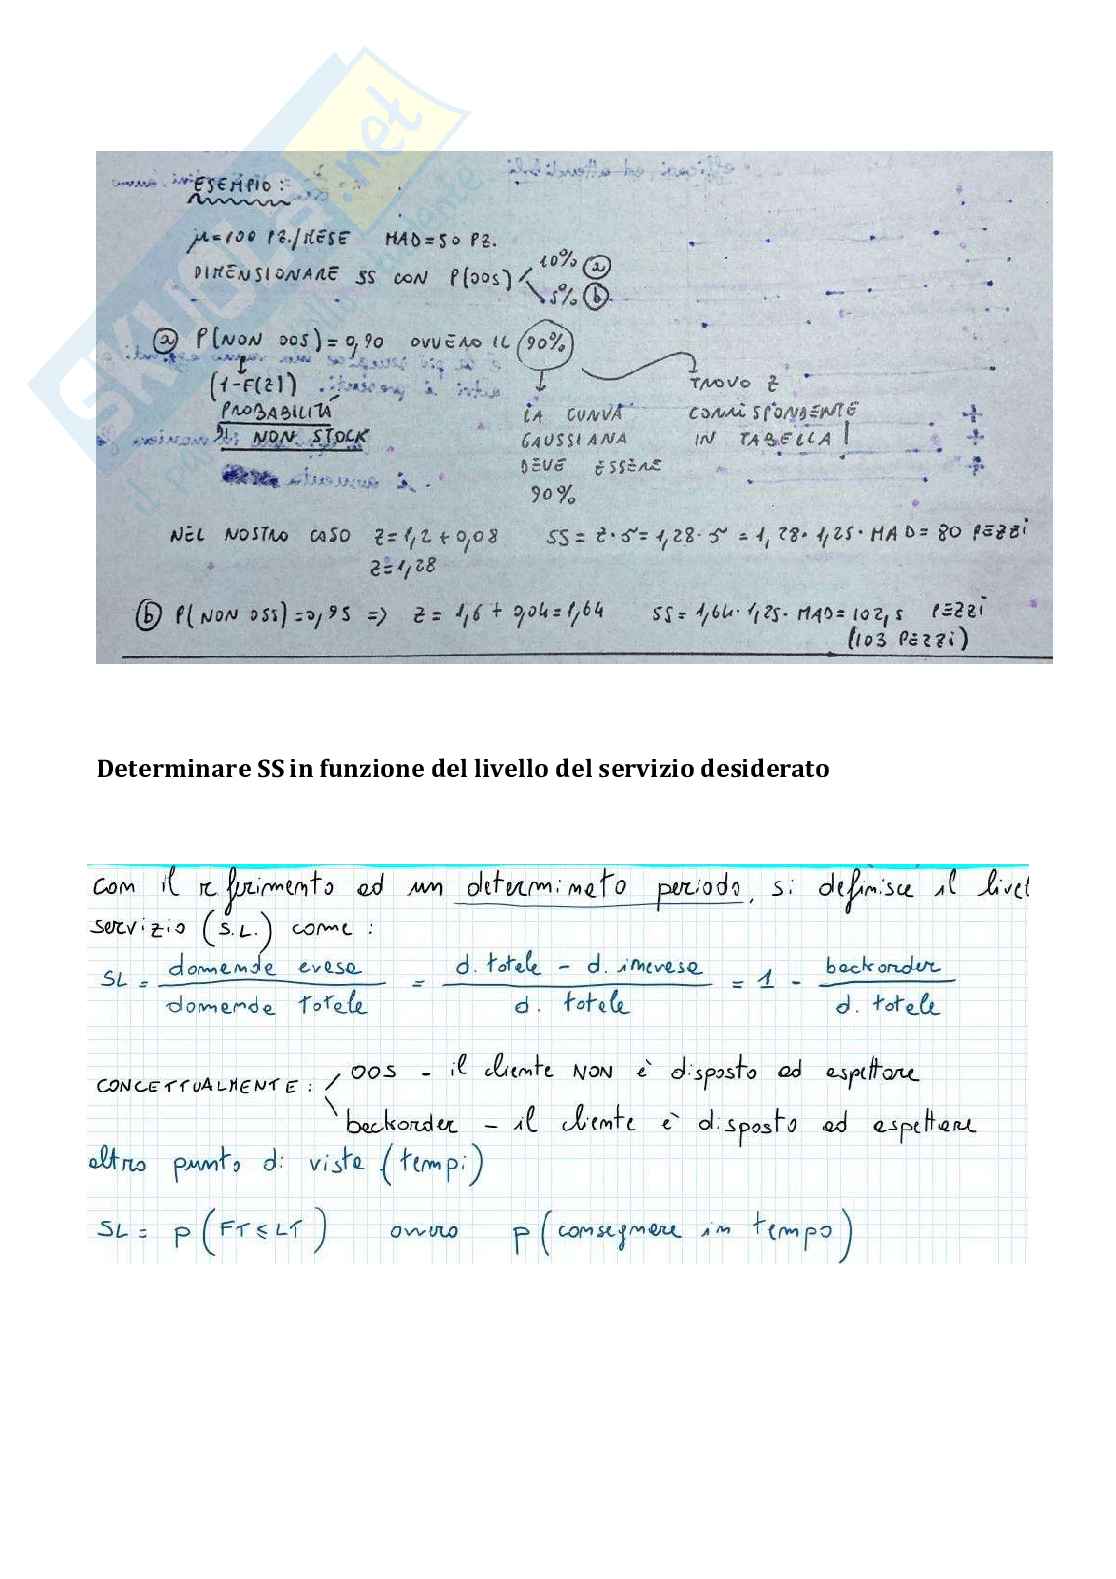 ESEMPIO:
μ=100 PZ./MESE MAD=50 PZ.
DIMENSIONARE SS CON P(OOS) 10% (a)
5% (b)
(a) P(NON OOS)=0,90 OVVERO IL 90%
(1-F(Z))
PROBABILITÀ
DI NON STOCK
LA CURVA
GAUSSIANA
DEVE ESSERE
90%
TROVO Z
CORRISPONDENTE
IN TABELLA!
NEL NOSTRO CASO Z=1,2+0,08 SS=Z·σ=1,28·σ=1,28·1,25·MAD=80 PEZZI
Z=1,28
(b) P(NON OSS)=0,95 => Z=1,6+0,04=1,64 SS=1,64·1,25·MAD=102,5 PEZZI
(103 PEZZI)
Determinare SS in funzione del livello del servizio desiderato
con il riferimento ad un determinato periodo, si definisce il livel
servizio (S.L.) come:
SL = domande evase / domande totale = d. totale - d. inevasa / d. totale = 1 - backorder / d. totale
CONCETTUALMENTE: OOS - il cliente NON è disposto ad aspettare
backorder - il cliente è disposto ad aspettare
altro punto di vista (tempi)
SL = p(FT≤LT) ovvero p(consegnare in tempo)
SKUOLA.net